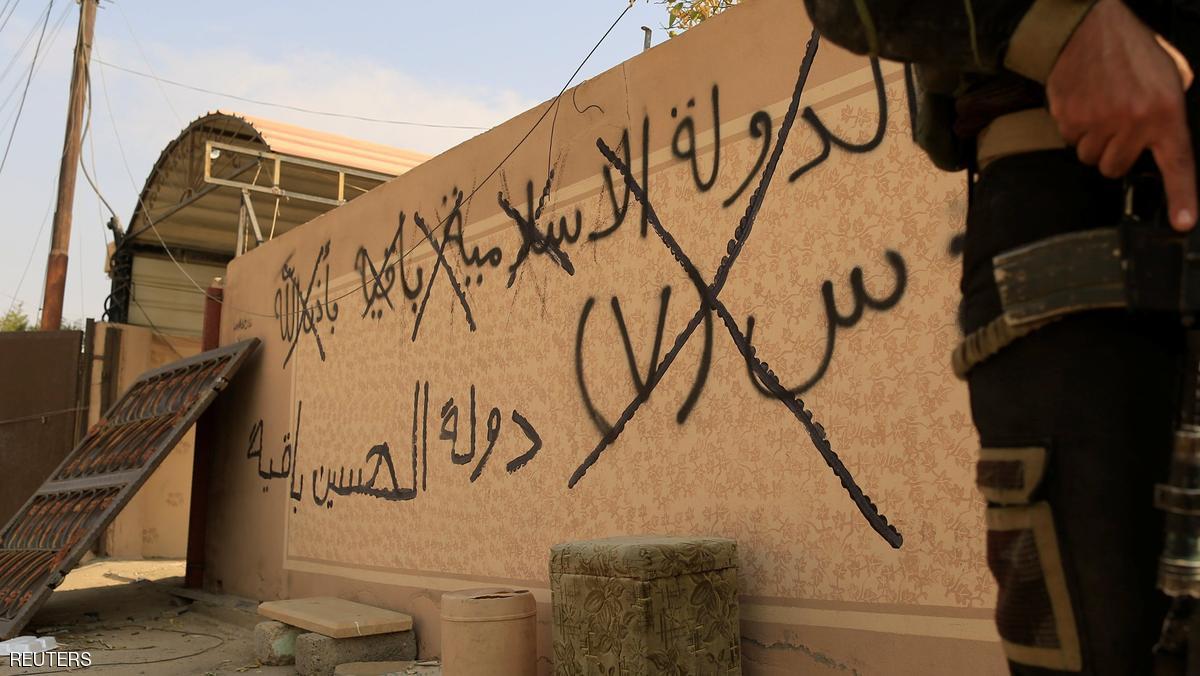 الدولة الاسلامية باقيا بأذن الله
س (٧)
دولة الحسين باقيه
REUTERS